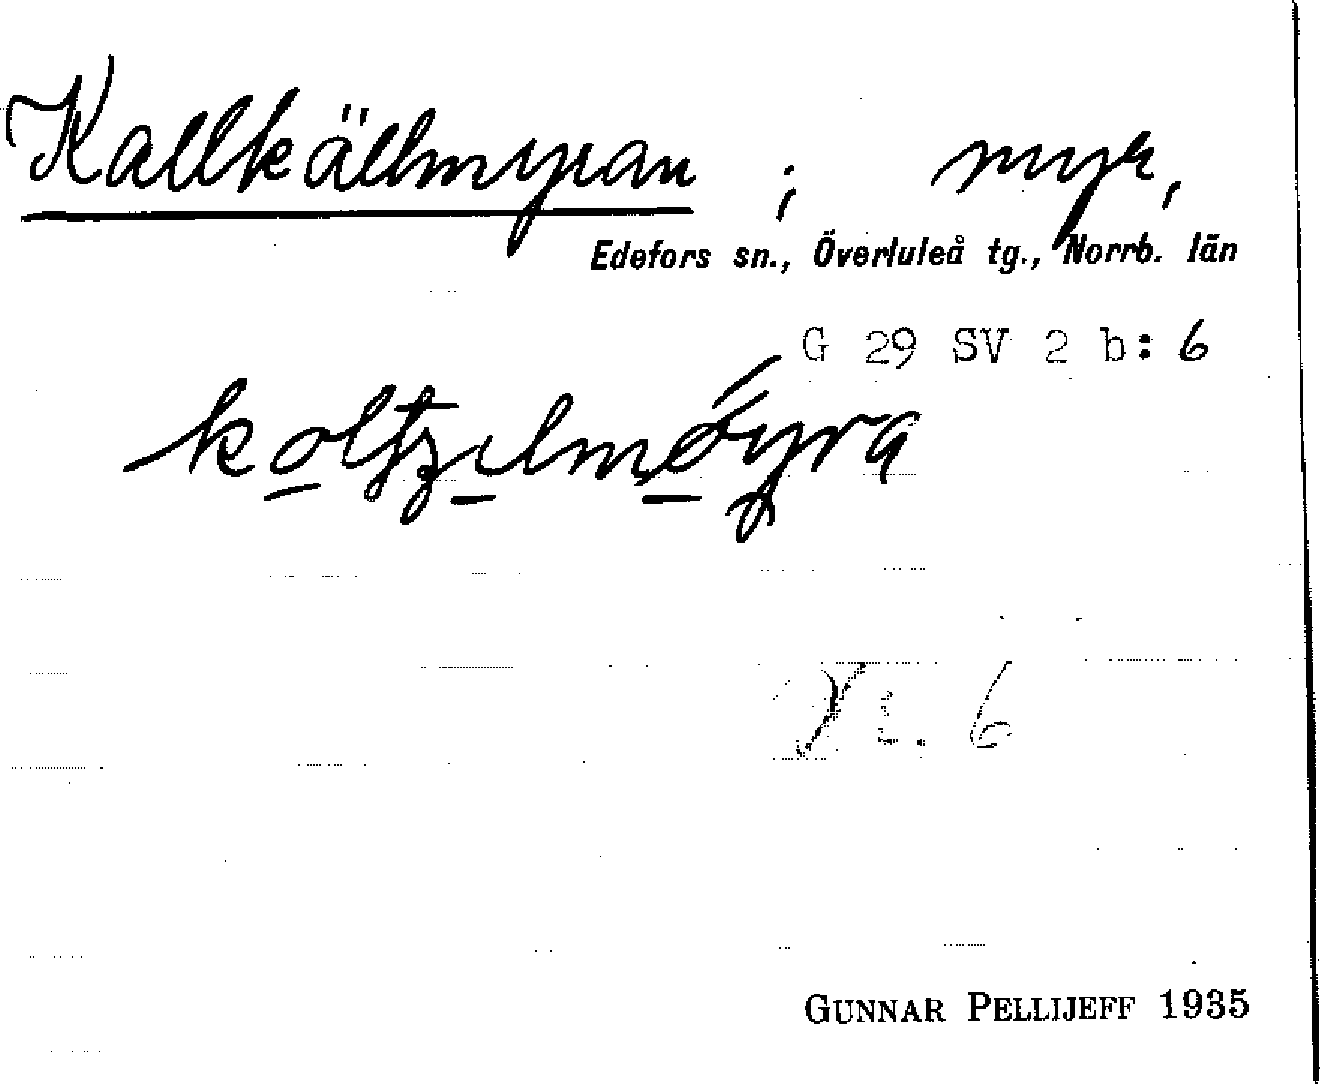 Kallkällmyran ; myr,
Edefors sn., Överluleå tg., Norrb. län
G 29 SV 2 b: 6
6
GUNNAR PELLIJEFF 1935